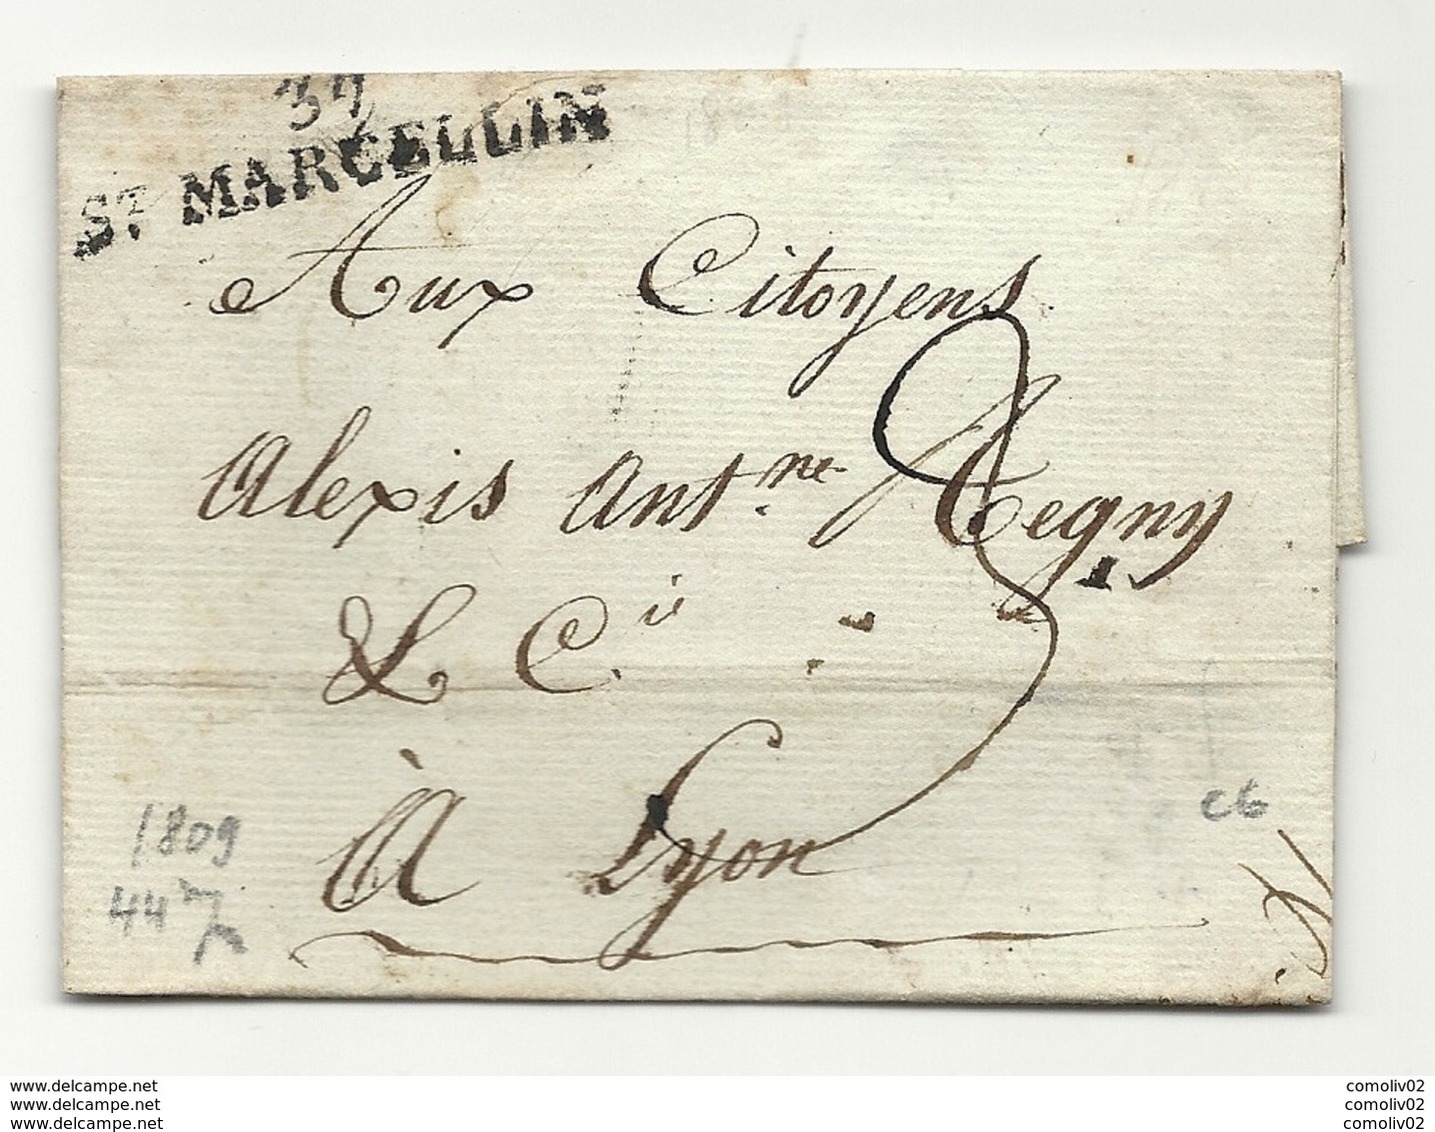 37
ST MARCELLIN
Aux Citoyens
Alexis Antne Regny
& Cie
A Lyon
1809
44
c6
www.delcampe.net
www.delcampe.net
www.delcampe.net
comoliv02
comoliv02
comoliv02